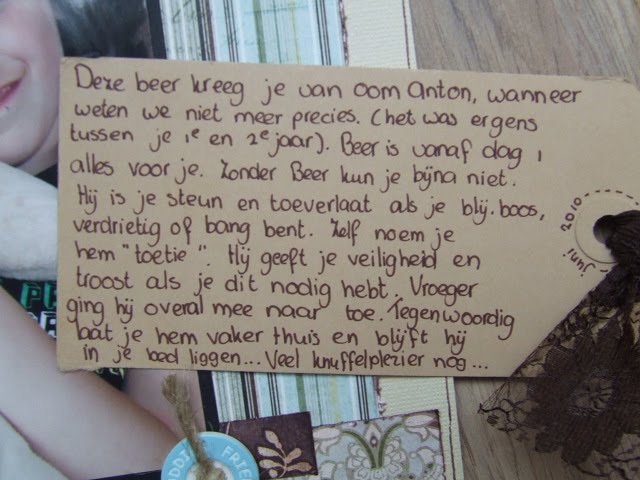 Deze beer kreeg je van oom Anton, wanneer
weten we niet meer precies. (het was ergens
tussen je 1e en 2e jaar). Beer is vanaf dag 1
alles voor je. Zonder Beer kun je bijna niet.
Hij is je steun en toeverlaat als je blij, boos,
verdrietig of bang bent. Zelf noem je
hem "toetie". Hij geeft je veiligheid en
troost als je dit nodig hebt. Vroeger
ging hij overal mee naar toe. Tegenwoordig
laat je hem vaker thuis en blijft hij
in je bed liggen... Veel knuffelplezier nog...
juni 2010